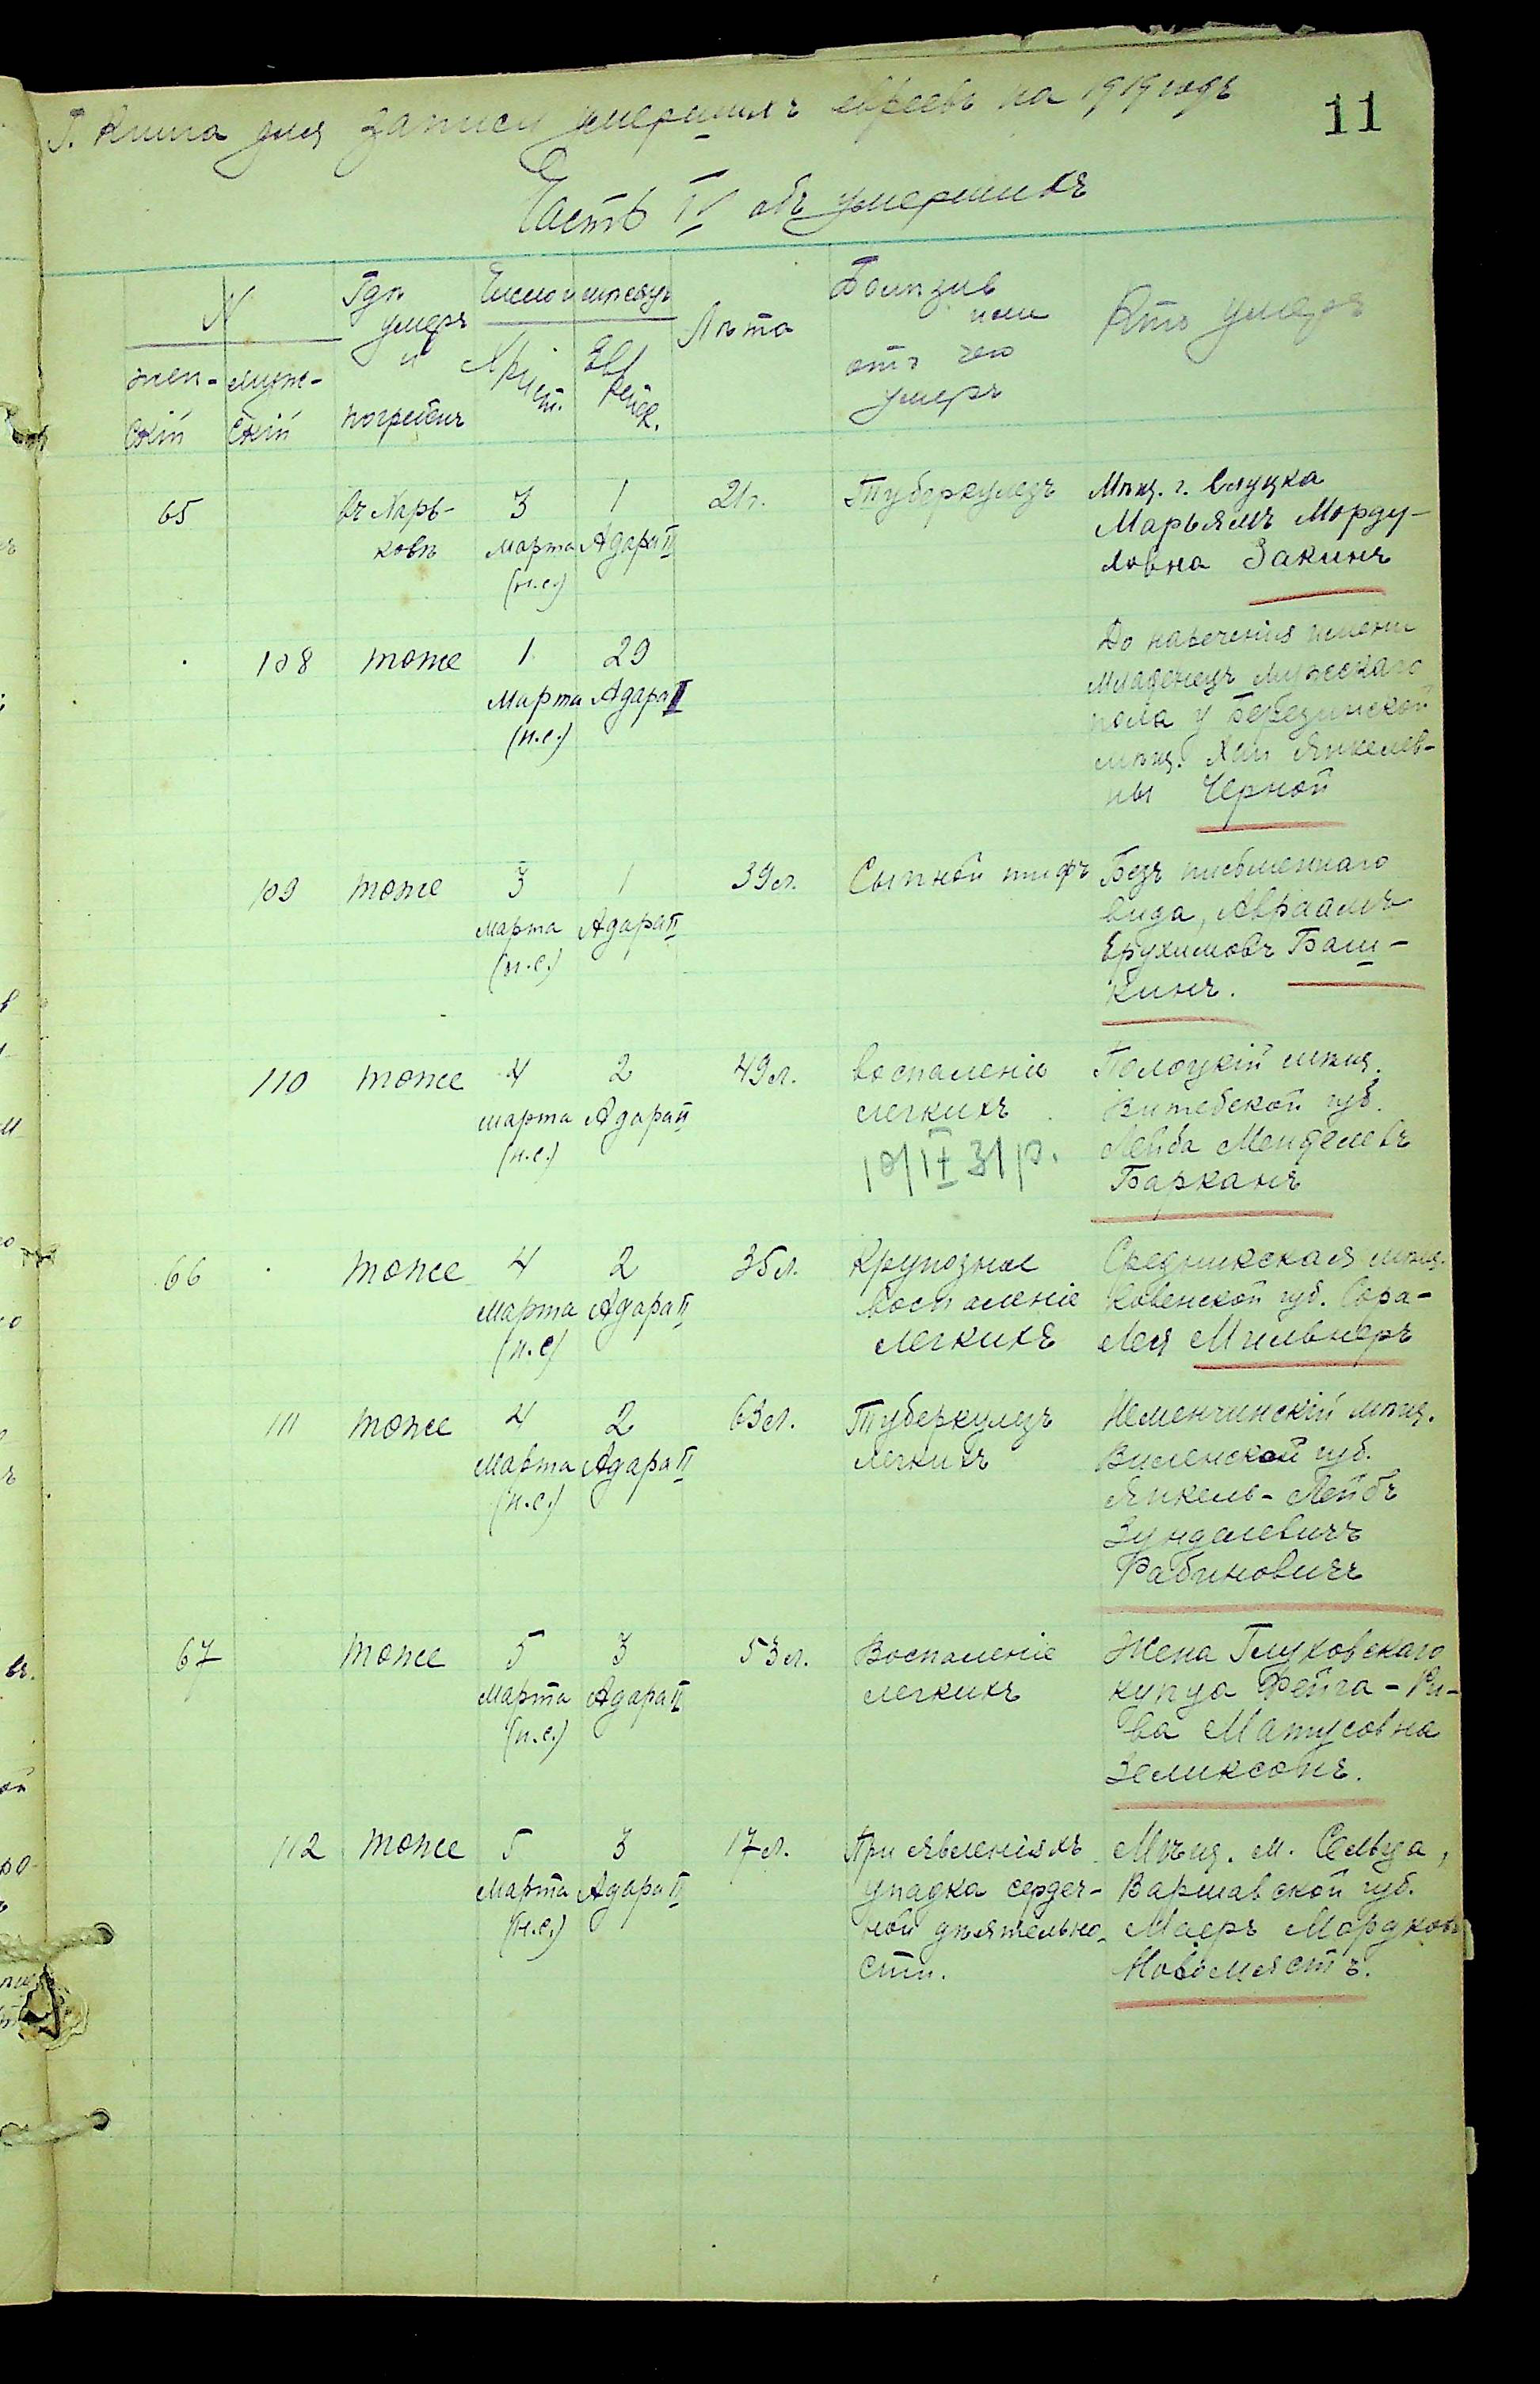 Книга для записи умершихъ евреевъ на 1919 годъ
11
Часть IV объ умершихъ
N
жен-
скій
муж-
скій
Гдѣ
умеръ
и
погребенъ
Число и мѣсяцъ
Христ.
Еврейск.
Лѣта
Болѣзнь
или
отъ чего
умеръ
Кто умеръ
65
въ Харь-
ковѣ
3
Марта
(н.с.)
1
Адара II
21 г.
Туберкулезъ
Мѣщ. г. Слуцка
Марьямъ Морду-
ховна Закинъ
108
тоже
1
Марта
(н.с.)
29
Адара I
До нареченія имени
младенецъ мужескаго
пола у Березинской
мѣщ. Хаи Янкелев-
ны Черной
109
тоже
3
марта
(н.с.)
1
Адара II
39 л.
Сыпной тифъ
Безъ письменнаго
вида, Авраамъ
Ерухимовъ Баш-
кинъ.
110
тоже
4
марта
(н.с.)
2
Адара II
49 л.
воспаленіе
легкихъ
Полоцкій мѣщ.
Витебской губ.
Лейба Менделевъ
Барканъ
66
тоже
4
Марта
(н.с)
2
Адара II
35 л.
Крупозное
воспаленіе
легкихъ
Средникская мѣщ.
Ковенской губ. Сора-
Лея Мильнеръ
111
тоже
4
Марта
(н.с.)
2
Адара II
63 л.
Туберкулезъ
легкихъ
Неменчинскій мѣщ.
Виленской губ.
Янкель-Лейбъ
Зунделевичъ
Рабиновичъ
67
тоже
5
Марта
(н.с.)
3
Адара II
53 л.
Воспаленіе
легкихъ
Жена Глуховскаго
купца Фейга-Ри-
ва Матусовна
Зеликсонъ.
112
тоже
5
Марта
(н.с.)
3
Адара II
17 л.
При явленіяхъ
упадка сердеч-
ной дѣятельно-
сти.
Мѣщ. м. Сельца,
Варшавской губ.
Маеръ Мордковъ
Новомястъ.